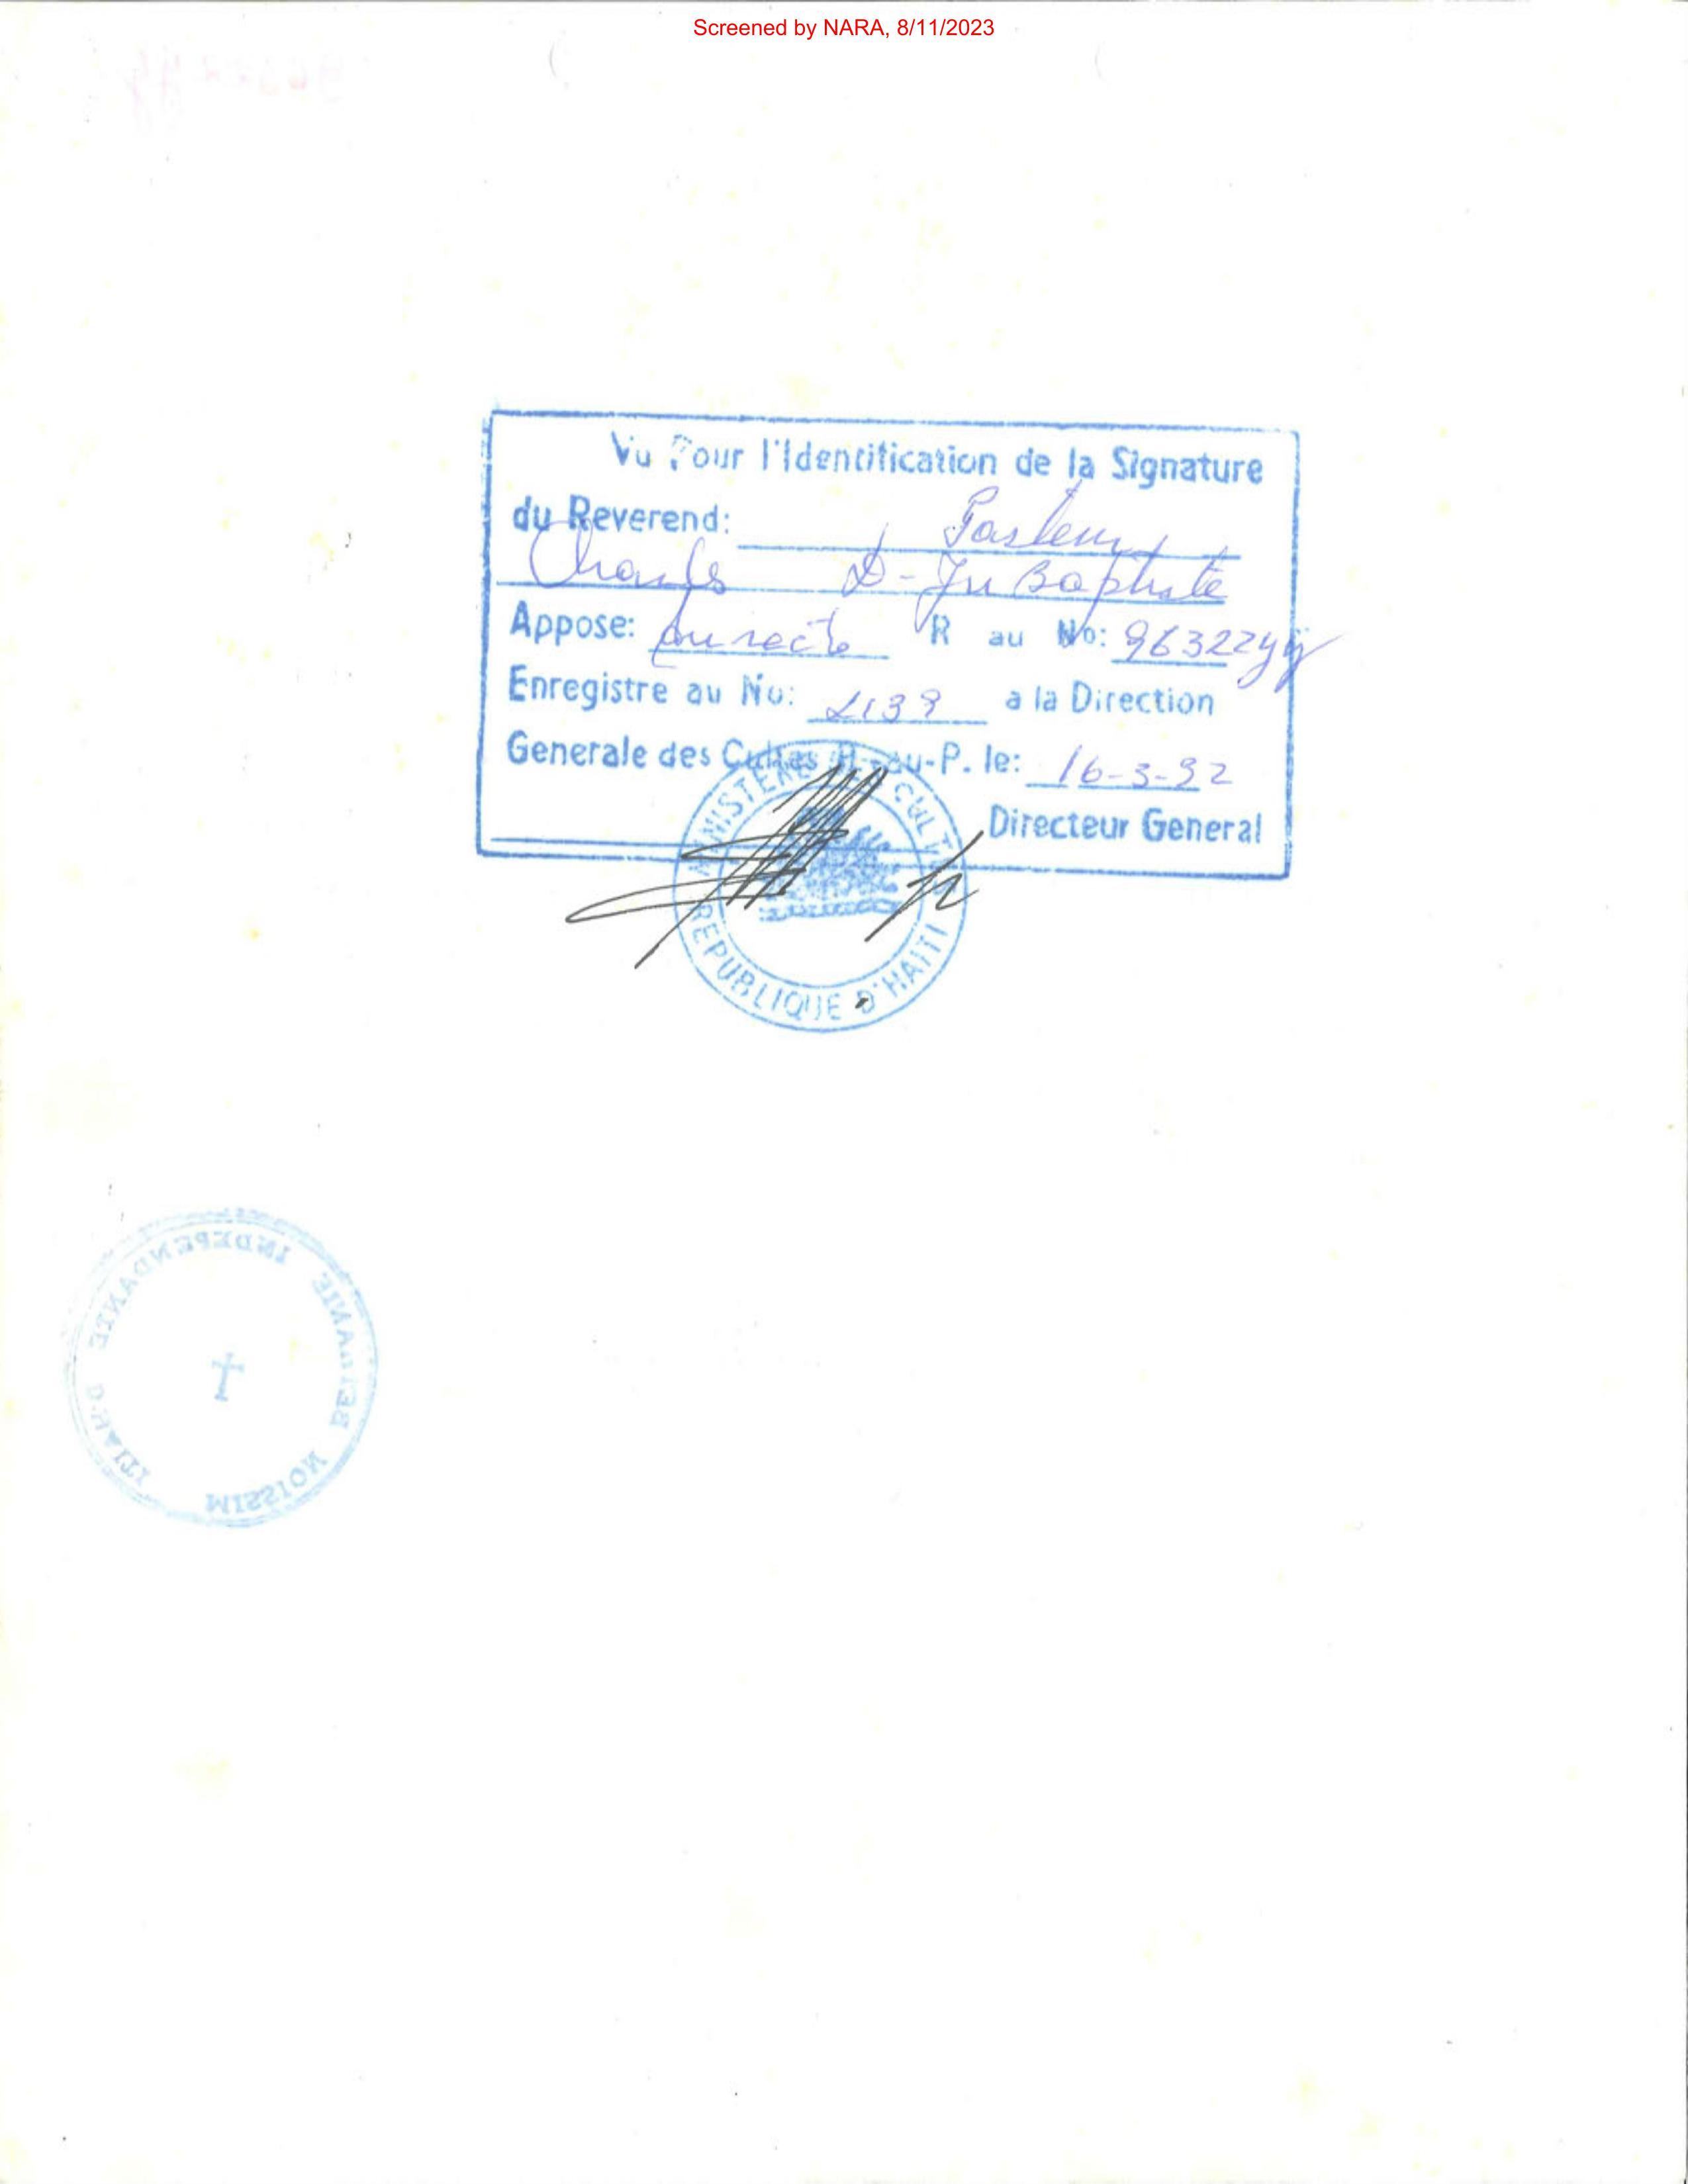 Screened by NARA, 8/11/2023
Vu Pour l'Identification de la Signature
du Reverend: Pasteur
Charles D - Jn Baptiste
Appose: au recto R au No: 963224
Enregistre au No: 2139 a la Direction
Generale des Cultes P-au-P. le: 16-3-92
Directeur General
MINISTERE CULTES
REPUBLIQUE D'HAITI
MISSION BETHANIE INDEPENDANTE D'HAITI